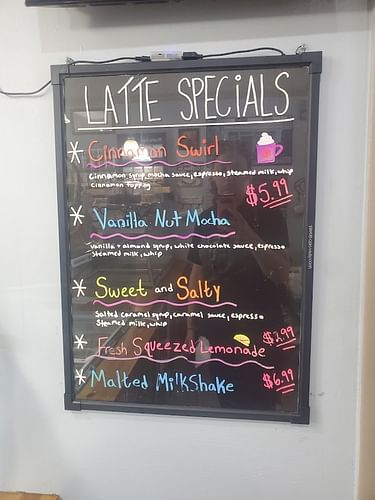 LATTE SPECIALS
* Cinnamon Swirl
Cinnamon syrup, mocha sauce, espresso, steamed milk, whip
Cinnamon topping
$5.99
* Vanilla Nut Mocha
Vanilla + almond syrup, white chocolate sauce, espresso
Steamed milk, whip
* Sweet and Salty
Salted caramel syrup, caramel sauce, espresso
Steamed milk, whip
* Fresh Squeezed Lemonade $2.99
* Malted Milkshake $6.99